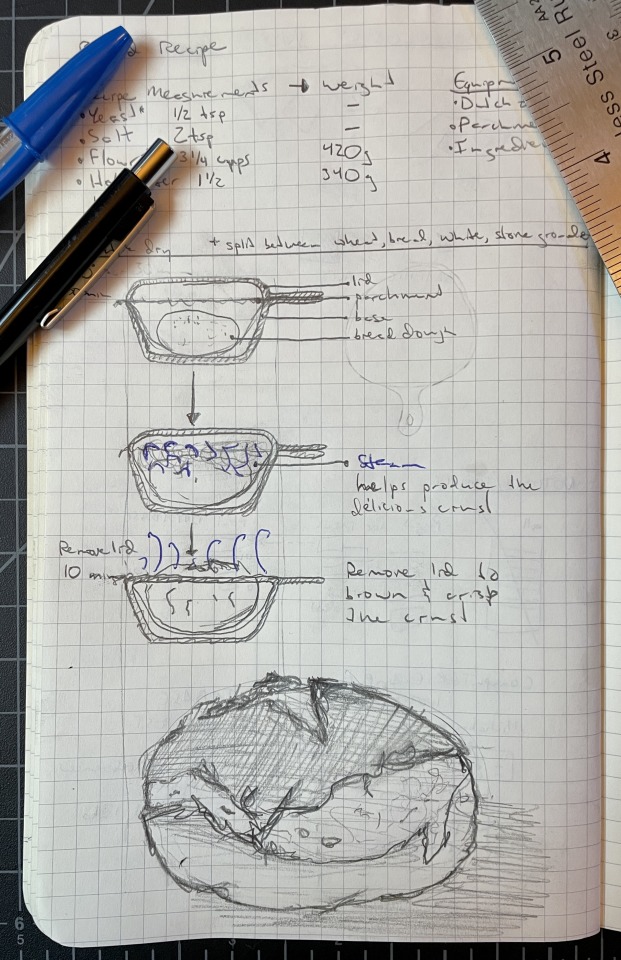 Recipe
Measurements → weight
• Yeast* 1/2 tsp –
• Salt 2 tsp –
• Flour 3 1/4 cups 420g
• 1 1/2 340g
Equip
• Dutch
• Parchme
• Ingredie
dry + split between wheat, bread, white, stone ground
lid
parchment
base
bread dough
10
Steam
helps produce the
delicious crust
Remove lid
10 min
Remove lid to
brown & crisp
the crust
less Steel Ru
5
4
6
5
3
2